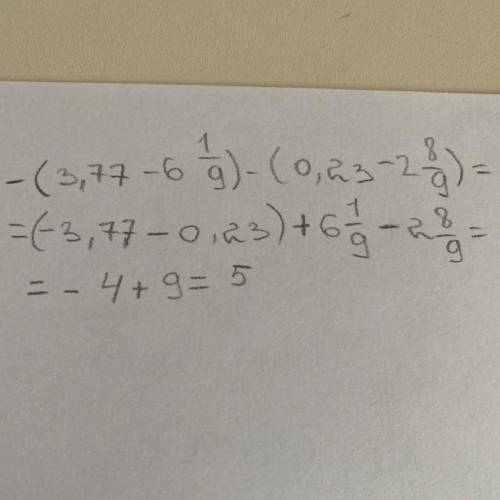 -(3,77 - 6 1/9) - (0,23 - 2 8/9) =
= (-3,77 - 0,23) + 6 1/9 - 2 8/9 =
= - 4 + 9 = 5